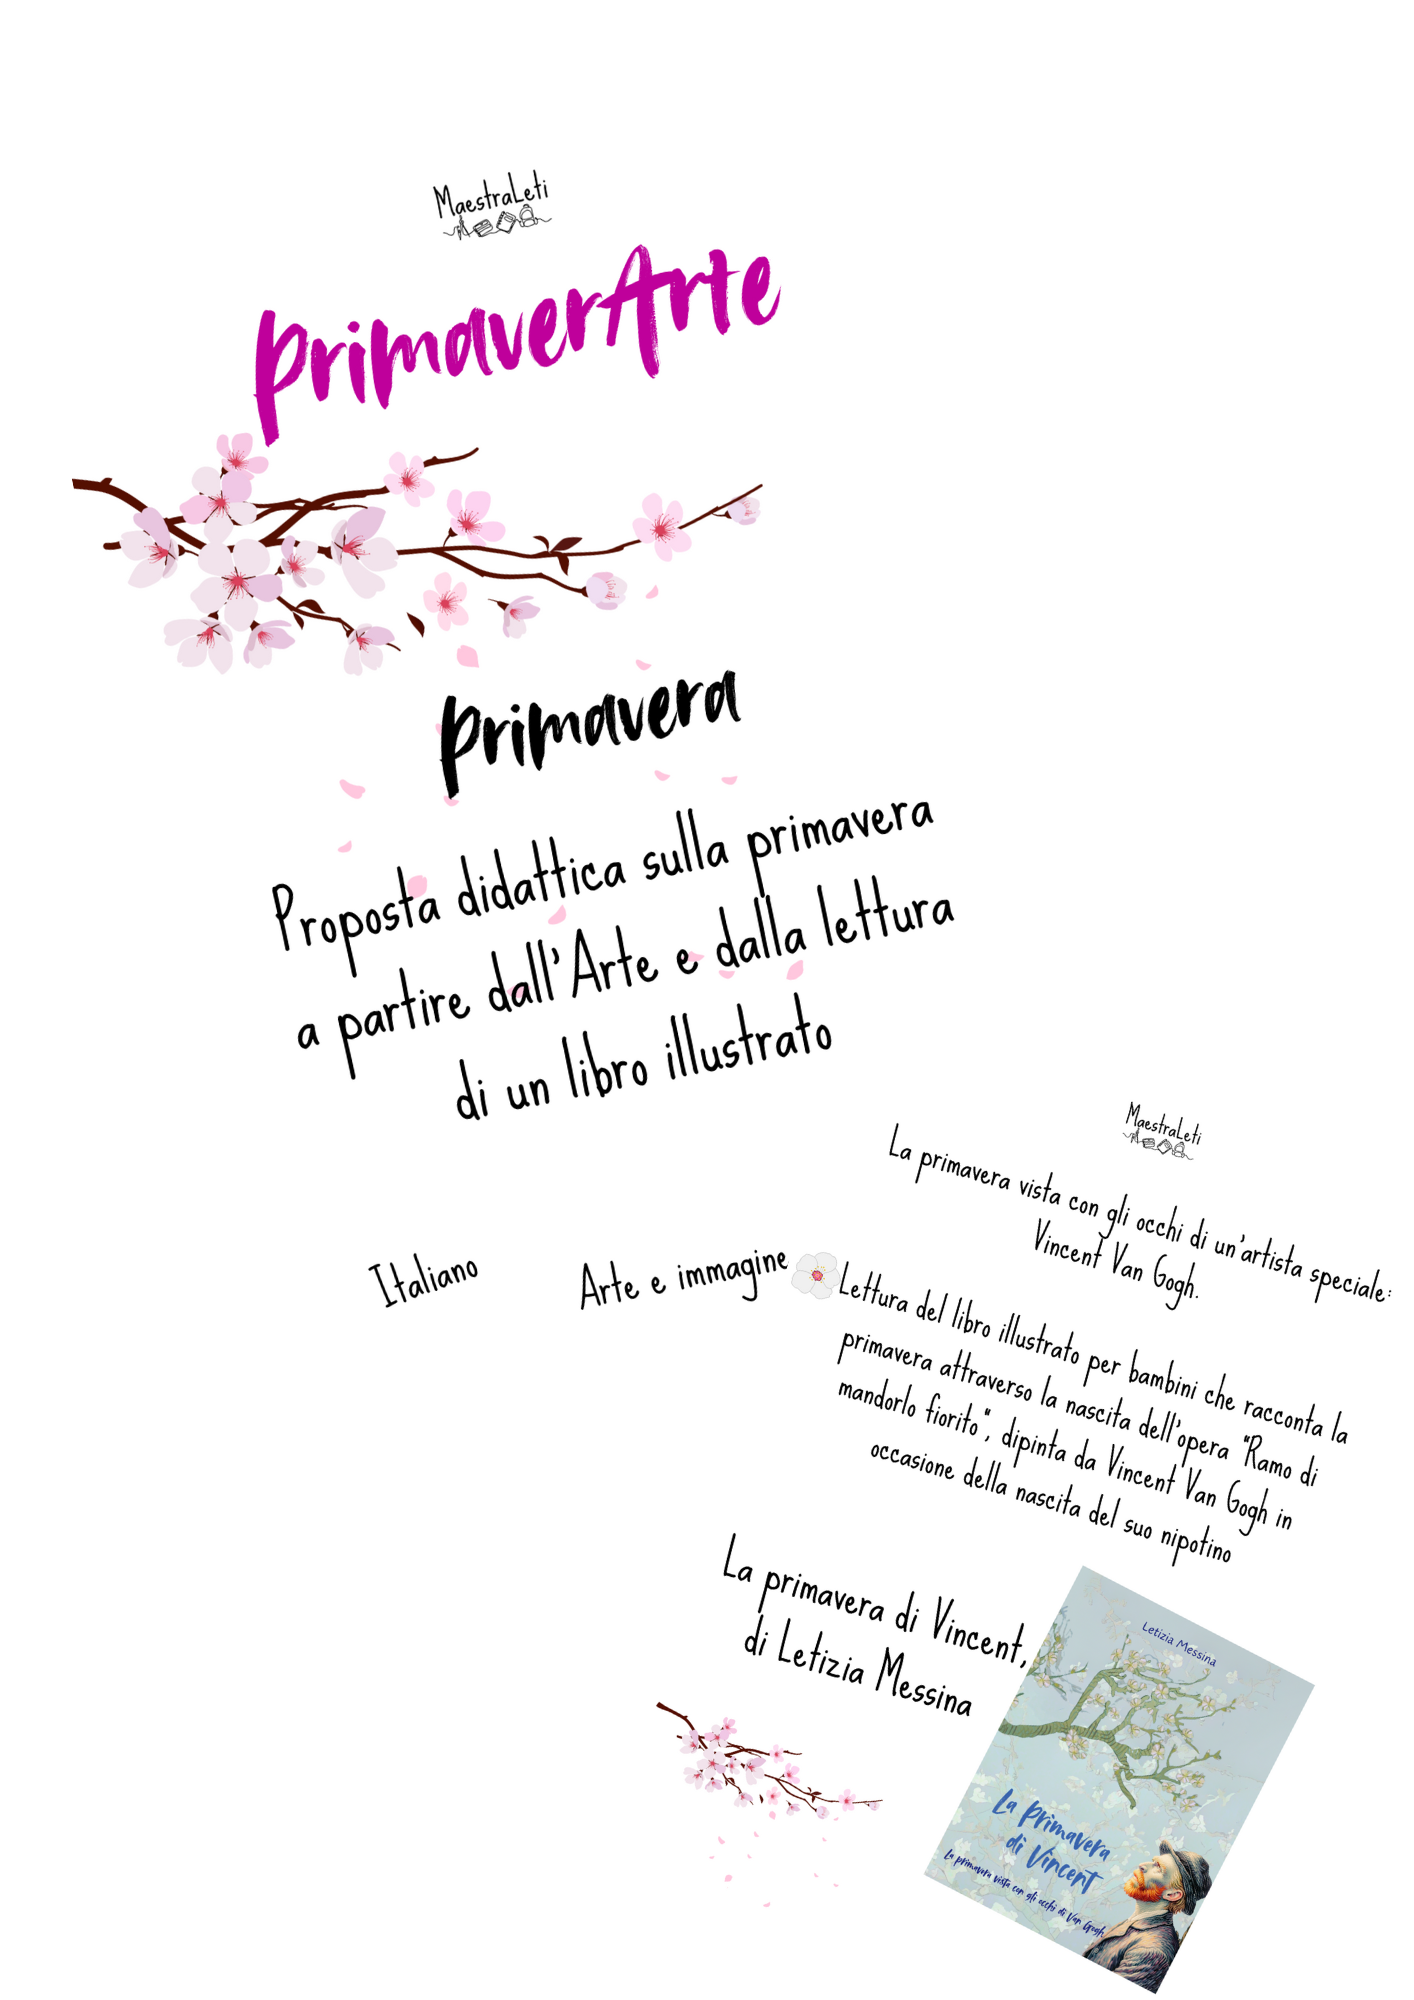 MaestraLeti
PrimaverArte
Primavera
Proposta didattica sulla primavera
a partire dall'Arte e dalla lettura
di un libro illustrato
Italiano
Arte e immagine
MaestraLeti
La primavera vista con gli occhi di un'artista speciale:
Vincent Van Gogh.
Lettura del libro illustrato per bambini che racconta la
primavera attraverso la nascita dell'opera "Ramo di
mandorlo fiorito", dipinta da Vincent Van Gogh in
occasione della nascita del suo nipotino
La primavera di Vincent,
di Letizia Messina
Letizia Messina
La Primavera
di Vincent
La primavera vista con gli occhi di Van Gogh